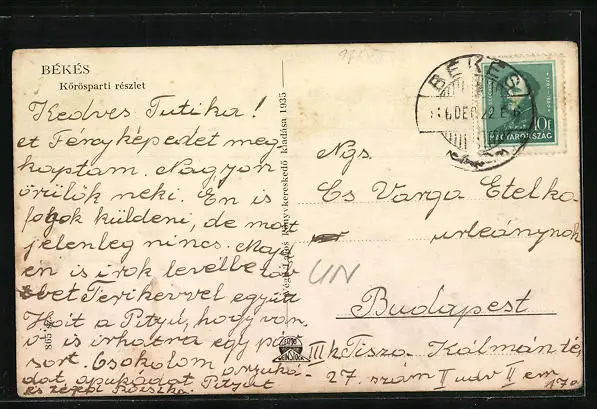 BÉKÉS
Kőrösparti részlet
Kedves Tutika!
et Fényképedet meg
kaptam. Nagyon
örülök neki. Én is
fogok küldeni, de most
jelenleg nincs. Majd
én is irok levélbe töb
bet Terikevvel együtt
a Pityu, hogy van
is irhatna egy pár
sort. Csokolom anyuká-
dat, apukádat Pityut
és
kiadása 1935
BÉKÉS
DEC 22
10f
MAGYARORSZÁG
Ngs.
Cs Varga Etelka
urleánynak
UN
Budapest
III k Tisza Kálmán tér
27. szám II udv II em
17a